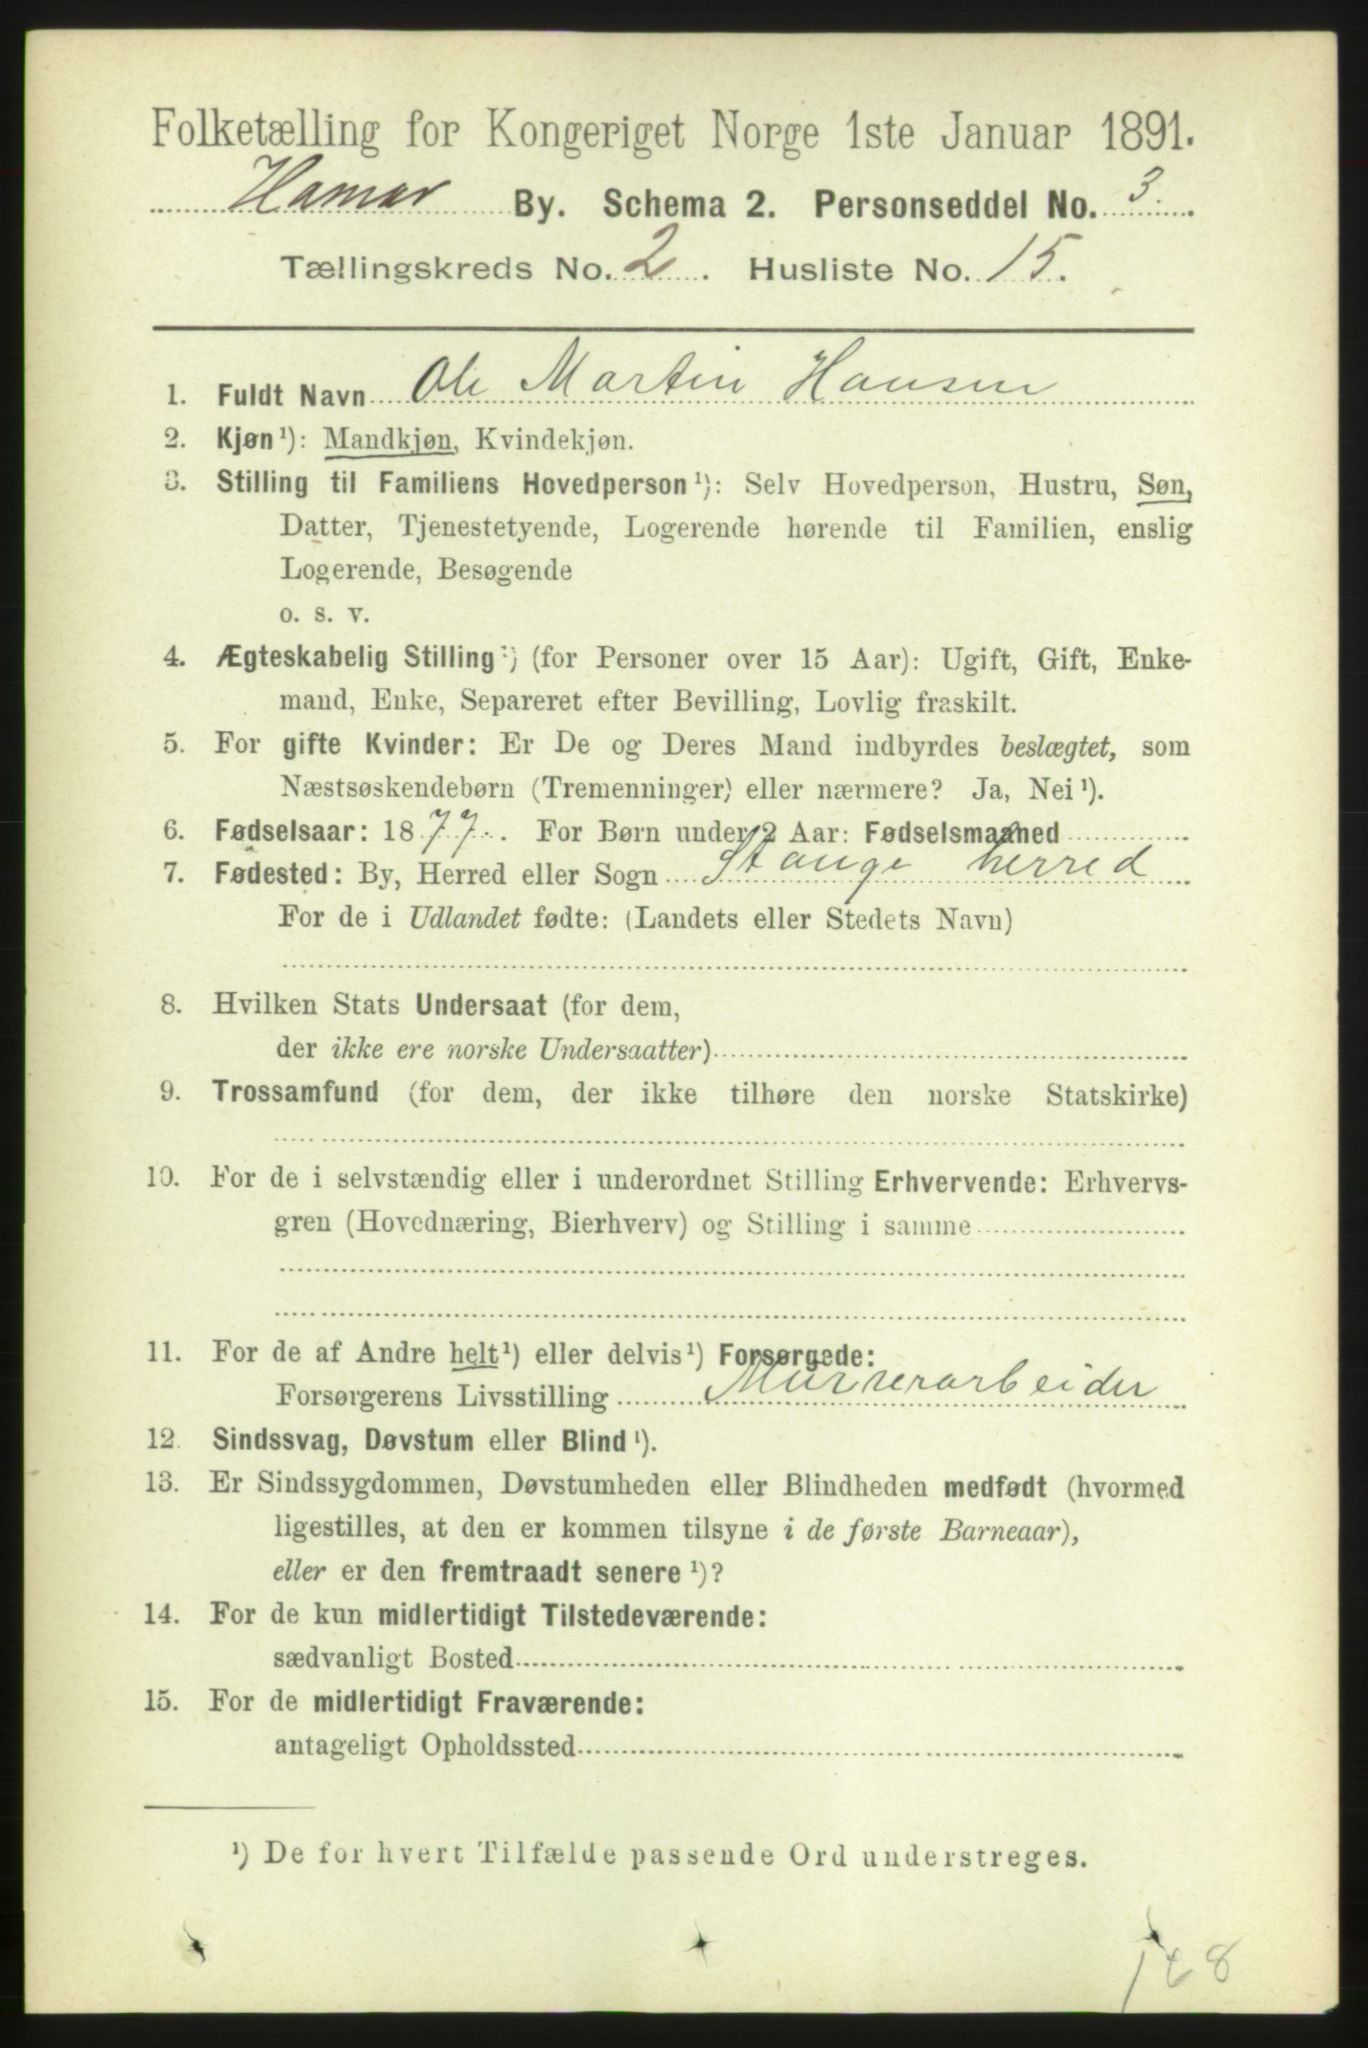 Folketælling for Kongeriget Norge 1ste Januar 1891.
Hamar By. Schema 2. Personseddel No. 3.
Tællingskreds No. 2. Husliste No. 15.
1. Fuldt Navn Ole Martin Hansen
2. Kjøn¹): Mandkjøn, Kvindekjøn.
3. Stilling til Familiens Hovedperson¹): Selv Hovedperson, Hustru, Søn,
Datter, Tjenestetyende, Logerende hørende til Familien, enslig
Logerende, Besøgende
o. s. v.
4. Ægteskabelig Stilling¹) (for Personer over 15 Aar): Ugift, Gift, Enke-
mand, Enke, Separeret efter Bevilling, Lovlig fraskilt.
5. For gifte Kvinder: Er De og Deres Mand indbyrdes beslægtet, som
Næstsøskendebørn (Tremenninger) eller nærmere? Ja, Nei¹).
6. Fødselsaar: 1877. For Børn under 2 Aar: Fødselsmaaned
7. Fødested: By, Herred eller Sogn Stange herred
For de i Udlandet fødte: (Landets eller Stedets Navn)
8. Hvilken Stats Undersaat (for dem,
der ikke ere norske Undersaatter)
9. Trossamfund (for dem, der ikke tilhøre den norske Statskirke)
10. For de i selvstændig eller i underordnet Stilling Erhvervende: Erhvervs-
gren (Hovednæring, Bierhverv) og Stilling i samme
11. For de af Andre helt¹) eller delvis¹) Forsørgede:
Forsørgerens Livsstilling Murerarbeider
12. Sindssvag, Døvstum eller Blind¹).
13. Er Sindssygdommen, Døvstumheden eller Blindheden medfødt (hvormed
ligestilles, at den er kommen tilsyne i de første Barneaar),
eller er den fremtraadt senere¹)?
14. For de kun midlertidigt Tilstedeværende:
sædvanligt Bosted
15. For de midlertidigt Fraværende:
antageligt Opholdssted
¹) De for hvert Tilfælde passende Ord understreges.
148